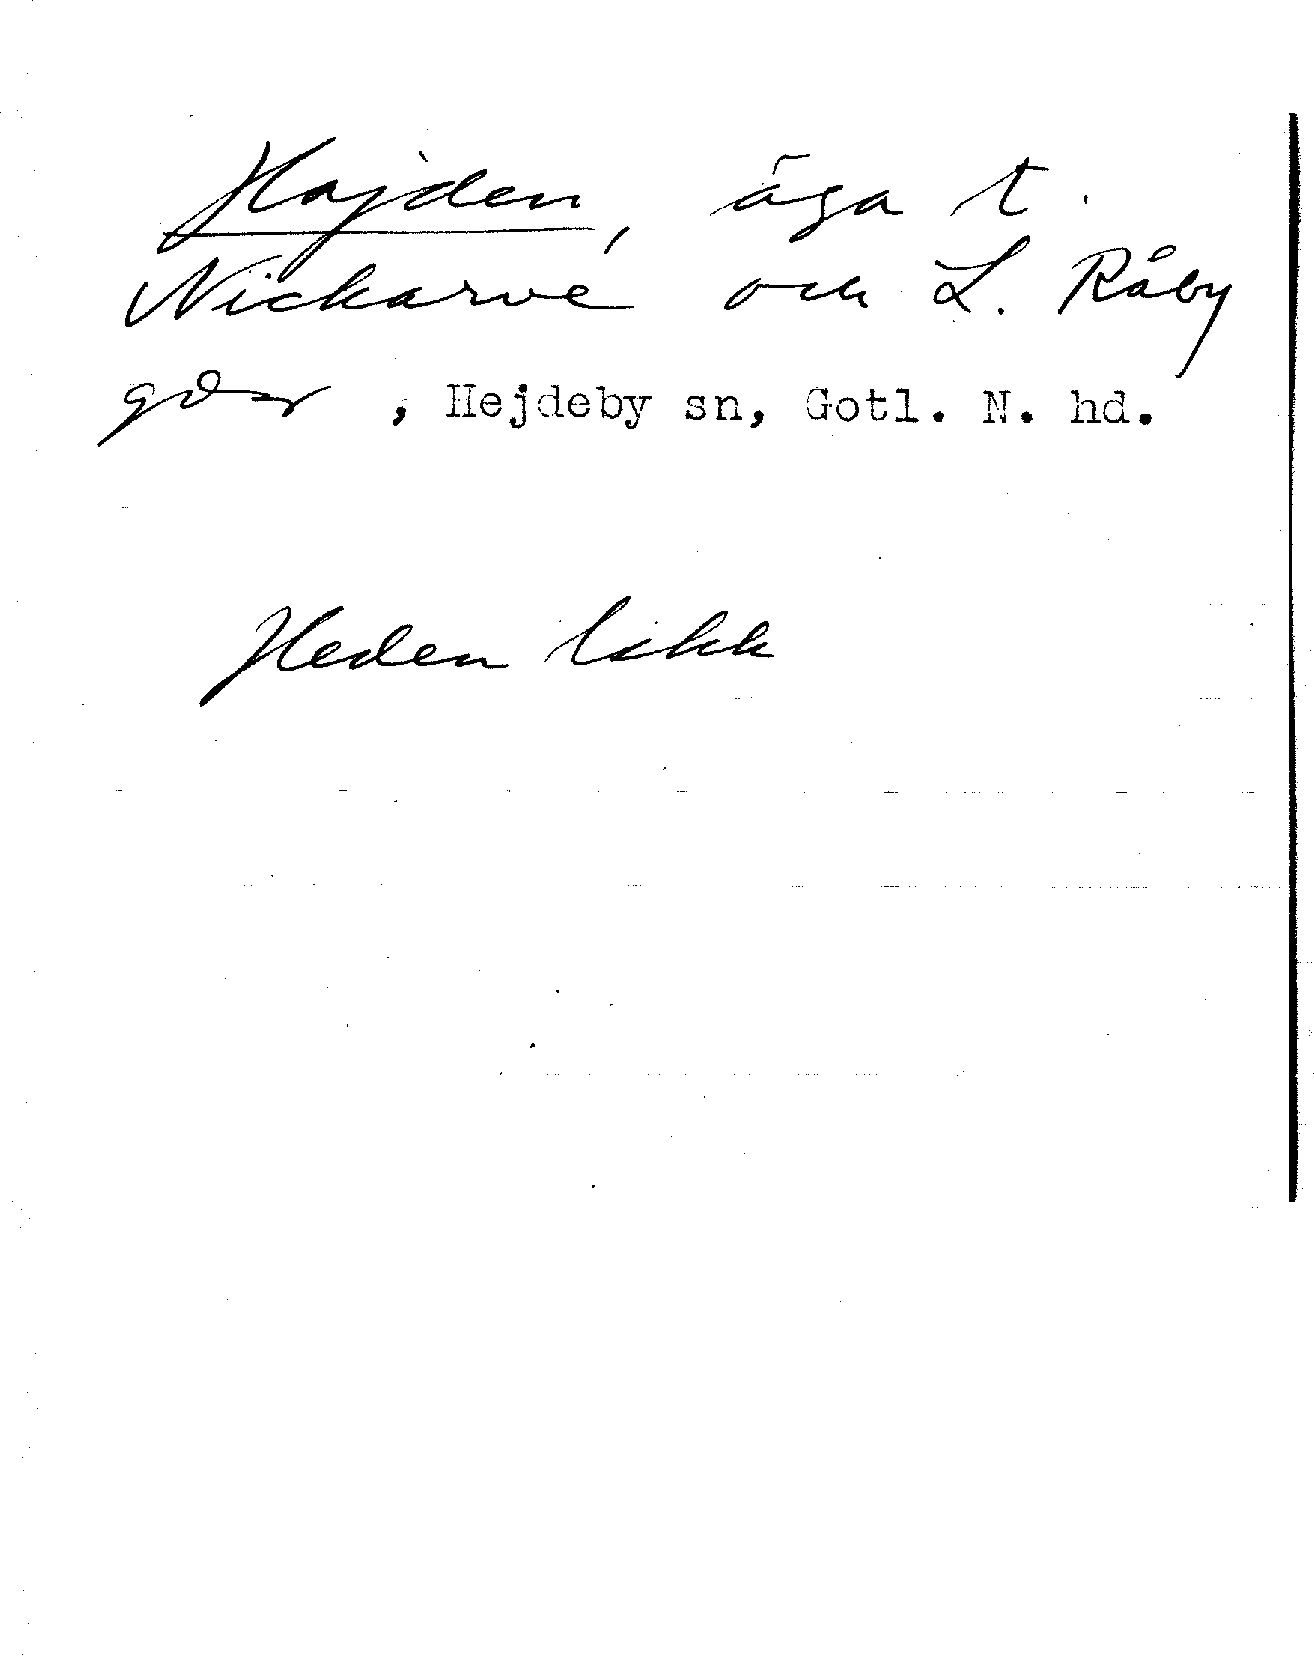 Hajden, äga t.
Nickarve och L. Råby
gdr, Hejdeby sn, Gotl. N. hd.
Heden